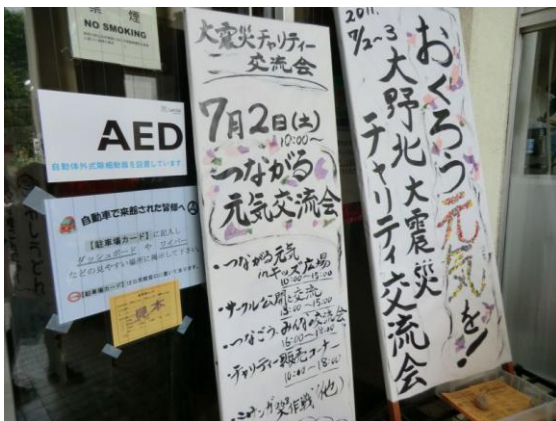 禁煙
NO SMOKING
AED
自動体外式除細動器を設置しています
自動車で来館された皆様へ
【駐車場カード】に記入し
ダッシュボード や ワイパー
などの見やすい場所に掲示して下さい。
見本
大震災チャリティー
交流会
7月2日(土)
10:00~
つながる
元気交流会
・つながる元気
inキッズ広場
10:00~15:00
・サークル公開と交流
13:00~15:00
・つなごう、みんな交流会
16:00~18:00
・チャリティー販売コーナー
10:00~18:00
(他)
2011.
7/2~3
おくろう元気を!
大野北大震災
チャリティ交流会